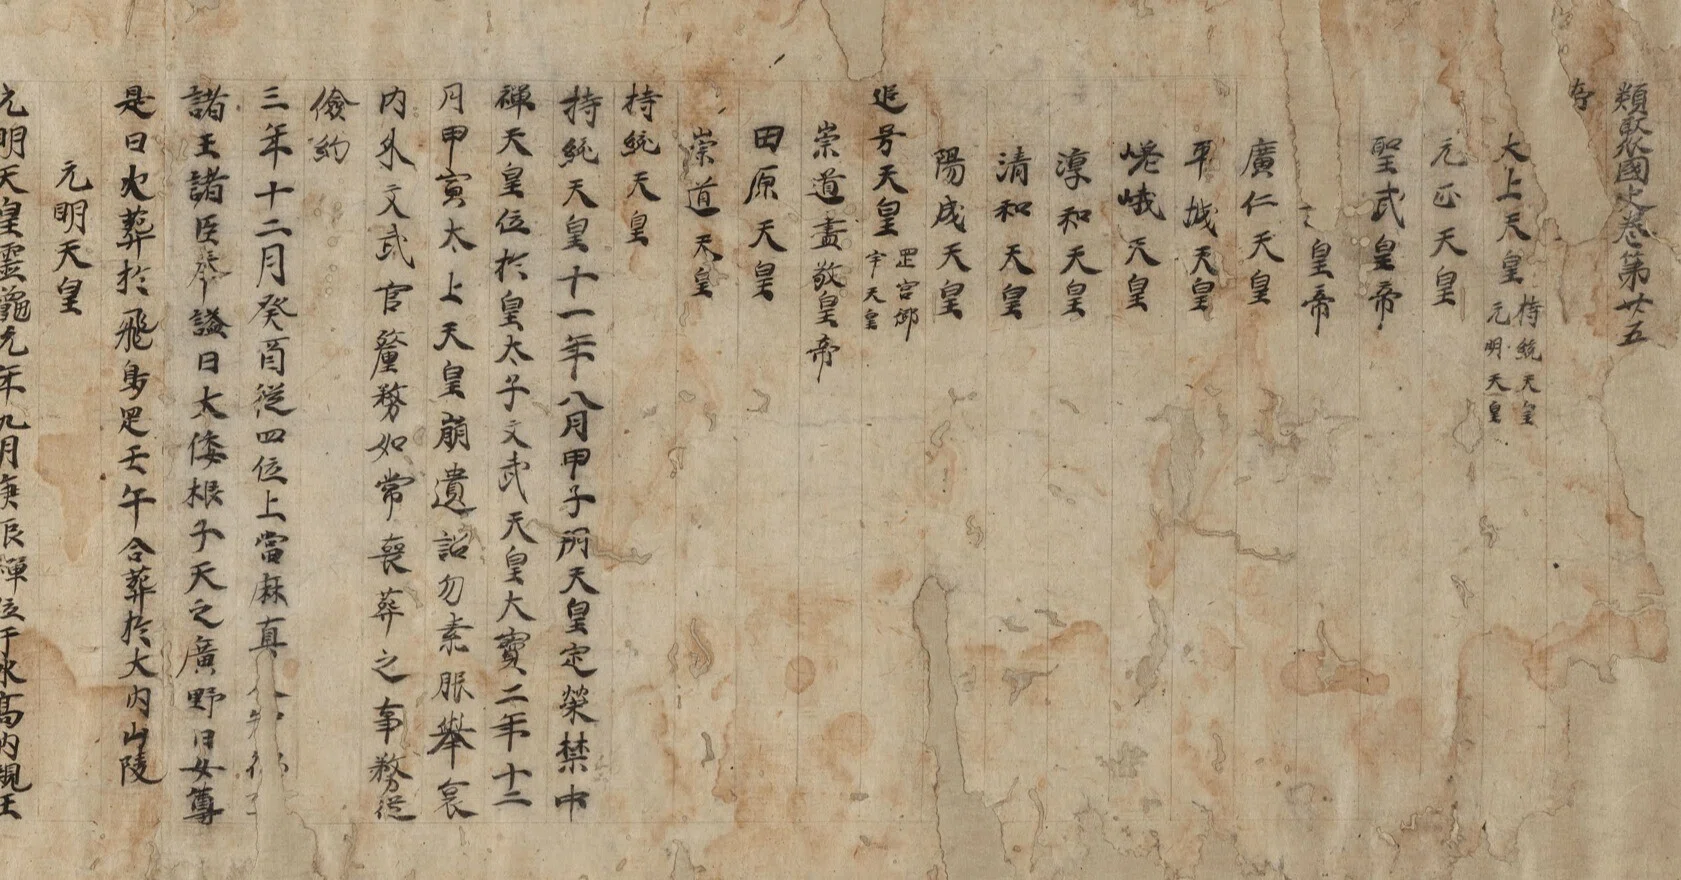 類聚國史卷第廿五
大上天皇 持統天皇 元明天皇
元正天皇
聖武皇帝
皇帝
廣仁天皇
平城天皇
嵯峨天皇
淳和天皇
清和天皇
陽成天皇
追号天皇 罡宮御宇天皇
崇道盡敬皇帝
田原天皇
崇道天皇
持統天皇
持統天皇十一年八月甲子朔天皇定榮禁中
禅天皇位於皇太子文武天皇大寶二年十二
月甲寅太上天皇崩遺詔勿素服舉哀
内外文武官釐務如常喪葬之事務從
儉約
三年十二月癸酉從四位上當麻真
諸王諸臣奉謚曰大倭根子天之廣野日女尊
是日火葬於飛鳥罡壬午合葬於大内山陵
元明天皇
元明天皇靈龜元年九月庚辰禅位于氷高内親王